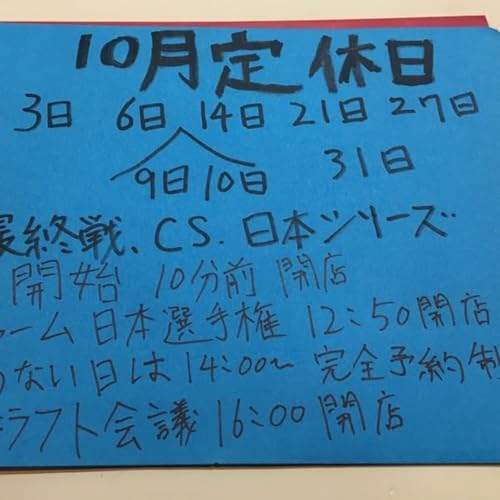 10月定休日
3日 6日 14日 21日 27日
9日 10日 31日
最終戦、CS、日本シリーズ
開始 10分前 開店
ーム 日本選手権 12:50開店
ない日は14:00〜 完全予約制
ドラフト会議 16:00開店